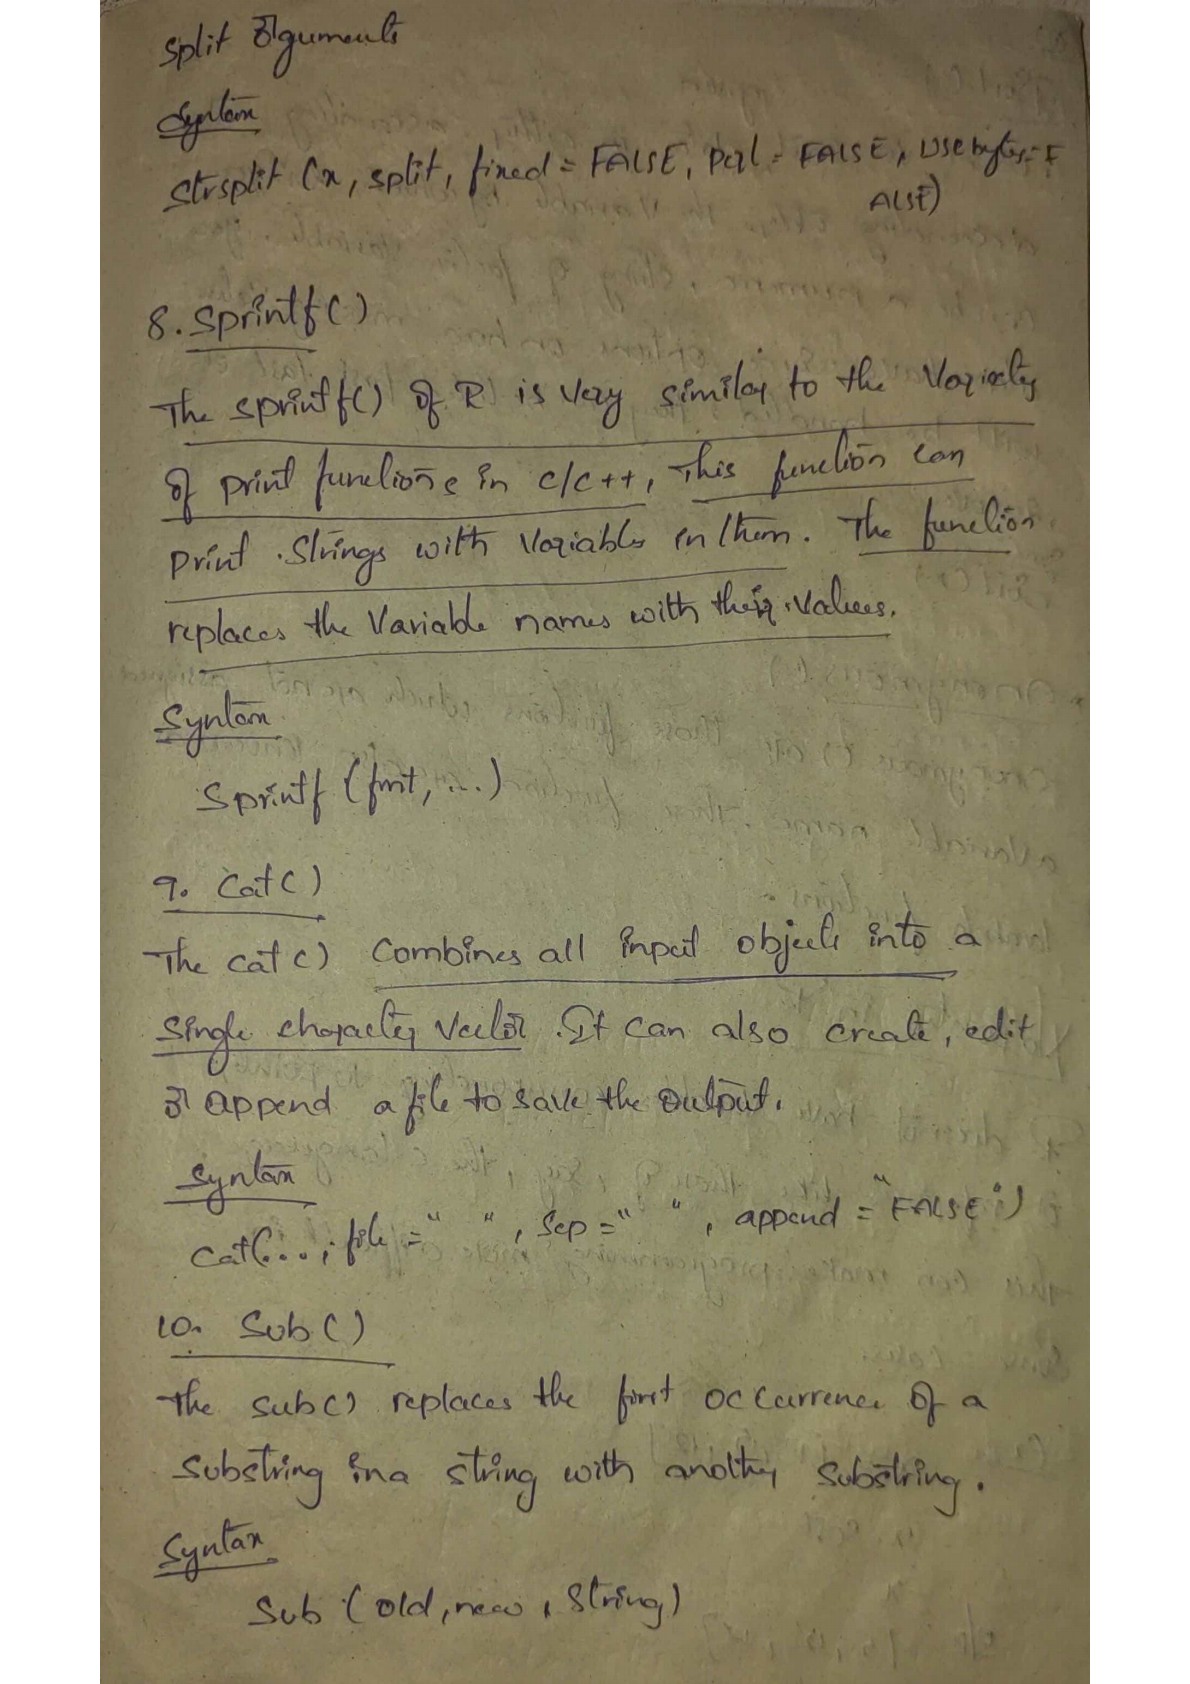 split arguments
Syntax
Strsplit (x, split, fixed = FALSE, perl = FALSE, usebytes = F
ALSE)
8. Sprintf()
The sprintf() of R is very similar to the Variety
of print functions in c/c++, This function can
print strings with variables in them. The function
replaces the Variable names with their values.
Syntax
Sprintf (fmt, ...)
9. Cat()
The cat() combines all input objects into a
single character vector. It can also create, edit
or append a file to save the output.
Syntax
Cat(..., file = " ", Sep = " ", append = "FALSE")
10. Sub()
The sub() replaces the first occurrence of a
substring in a string with another substring.
Syntax
Sub (old, new, String)